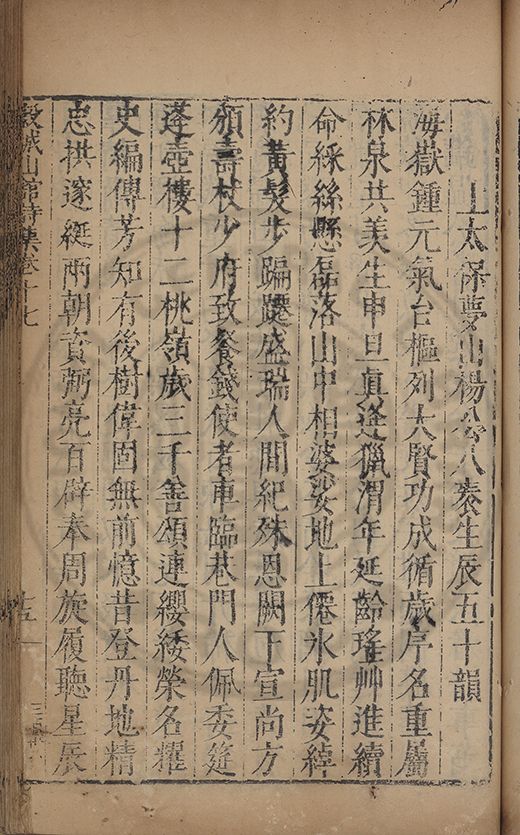 上太保夢山楊公八袠生辰五十韻
海嶽鍾元氣台樞列大賢功成循歲序名重屬
林泉共美生申旦眞逢獵渭年延齡瑤艸進續
命綵絲懸磊落山中相婆娑地上僊氷肌姿綽
約黃髮步蹁躚盛瑞人間紀殊恩闕下宣尚方
頒壽杖少府致餐錢使者車臨巷門人佩委筵
蓬壺樓十二桃嶺歲三千善頌連纓緌榮名耀
史編傳芳知有後樹偉固無前憶昔登丹地精
忠拱邃綖兩朝資弼亮百辟奉周旋履聽星辰
穀城山館詩集卷十七
十五